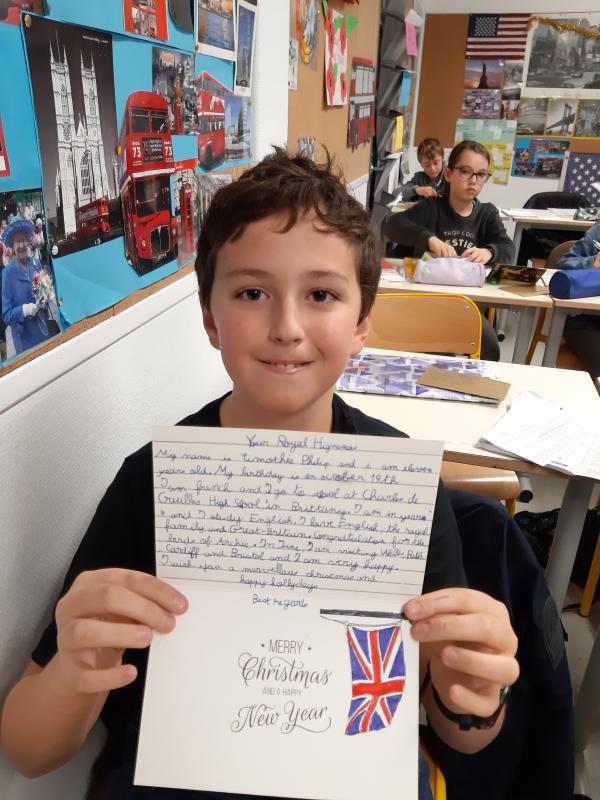 Your Royal Higness
My name is Timothée Philip and i am eleven
years old. My birthday is on october 19th
I am french and I go to shool at Charles de
Gaulles High Shool, in Brittany. I am in year 7
and I study English. I love English, the royal
family and Great-Britain. Congratulation for the
birds of Archie. In June, I am visiting Wells, Bath
Cardiff and Bristol and I am very happy.
I wish you a marvellous christmas and
happy hollydays
Best regards
MERRY
Christmas
AND A HAPPY
New Year
73
73
TROP COOL
BESTIES